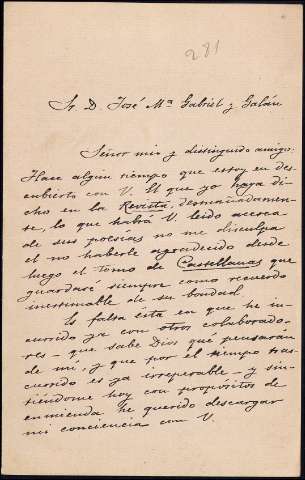 281
Sr. D. José Mª Gabriel y Galán
Señor mio y distinguido amigo:
Hace algún tiempo que estoy en des-
cubierto con V. El que yo haya di-
cho en la Revista, desmañadamen-
te, lo que habrá V. leído acerca
de sus poesías no me disculpa
el no haberle agradecido desde
luego el tomo de Castellanas que
guardaré siempre como recuerdo
inestimable de su bondad.
Es falta ésta en que he in-
currido ya con otros colaborado-
res - que sabe Dios que pensarán
de mí, y que por el tiempo tras-
currido es ya irreparable - y sin-
tiéndome hoy con propósitos de
enmienda he querido descargar
mi conciencia con V.